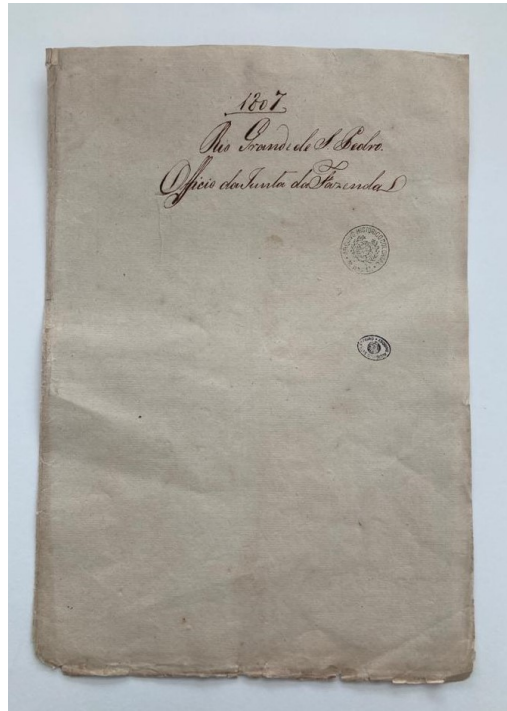 1807
Rio Grande de S Pedro.
Officio da Junta da Fazenda